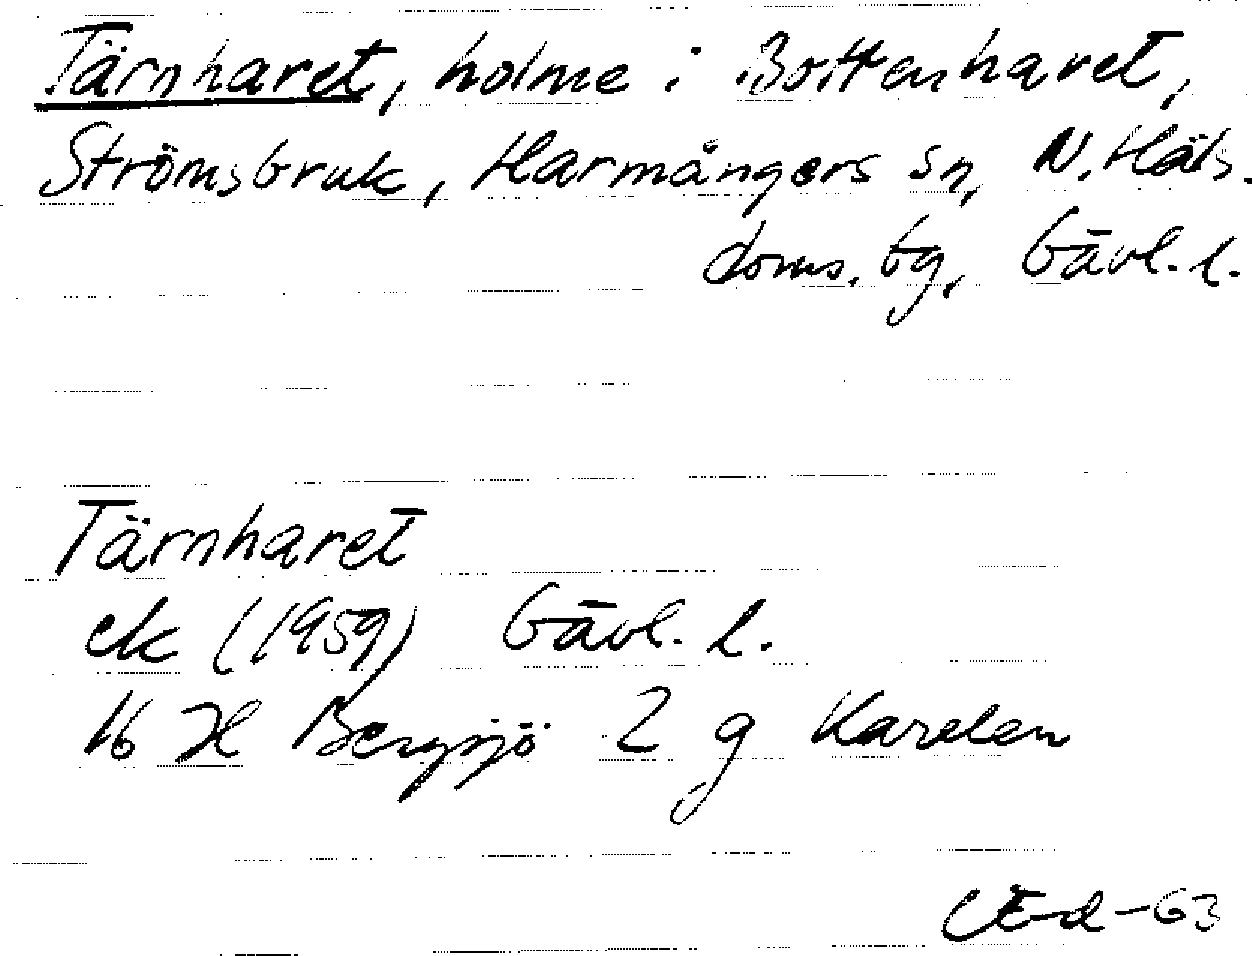 Tärnharet, holme i Bottenhavet,
Strömsbruk, Harmångers sn, N. Häls.
doms. tg, Gävl. l.
Tärnharet
ek (1959) Gävl. l.
16 H Bergsjö 2 g Karelen
-63